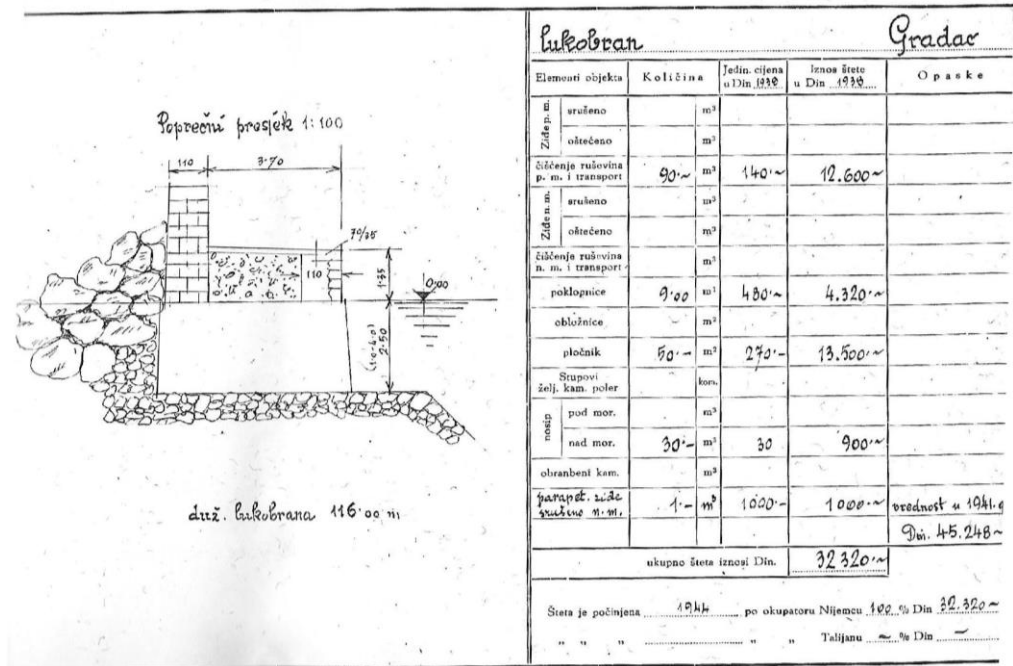 Poprečni presjek 1:100
110
3.70
70/35
110
1.35
0.00
(1.0-4.0)
2.50
duž. lukobrana 116.00 m
lukobran Gradac
Elementi objekta Količina Jedin. cijena u Din 1938 Iznos štete u Din 1938 Opaske
Ziđe p. m. srušeno m³
oštećeno m³
čišćenje ruševina p. m. i transport 90.~ m³ 140.~ 12.600~
Ziđe n. m. srušeno m³
oštećeno m³
čišćenje ruševina n. m. i transport m³
poklopnice 9.00 m¹ 480.~ 4.320.~
obložnice m²
pločnik 50.- m² 270.- 13.500.~
Stupovi želj. kam. poler kom.
nosip pod mor. m³
nad mor. 30.- m³ 30 900.~
obranbeni kam. m³
parapet. ziđe srušeno n.m. 1.- m³ 1000.- 1000.~ vrednost u 1941.g
Din. 45.248~
ukupno šteta iznosi Din. 32320.~
Šteta je počinjena 1944 po okupatoru Nijemcu 100 % Din 32.320~
" " " " " Talijanu ~ % Din ~